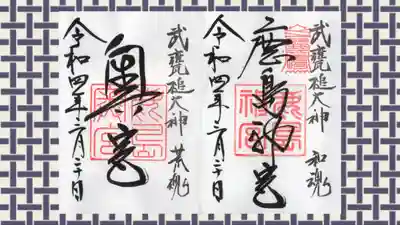 武甕槌大神 和魂
鹿島神宮
令和四年二月二十日
武甕槌大神 荒魂
奥宮
令和四年二月二十日